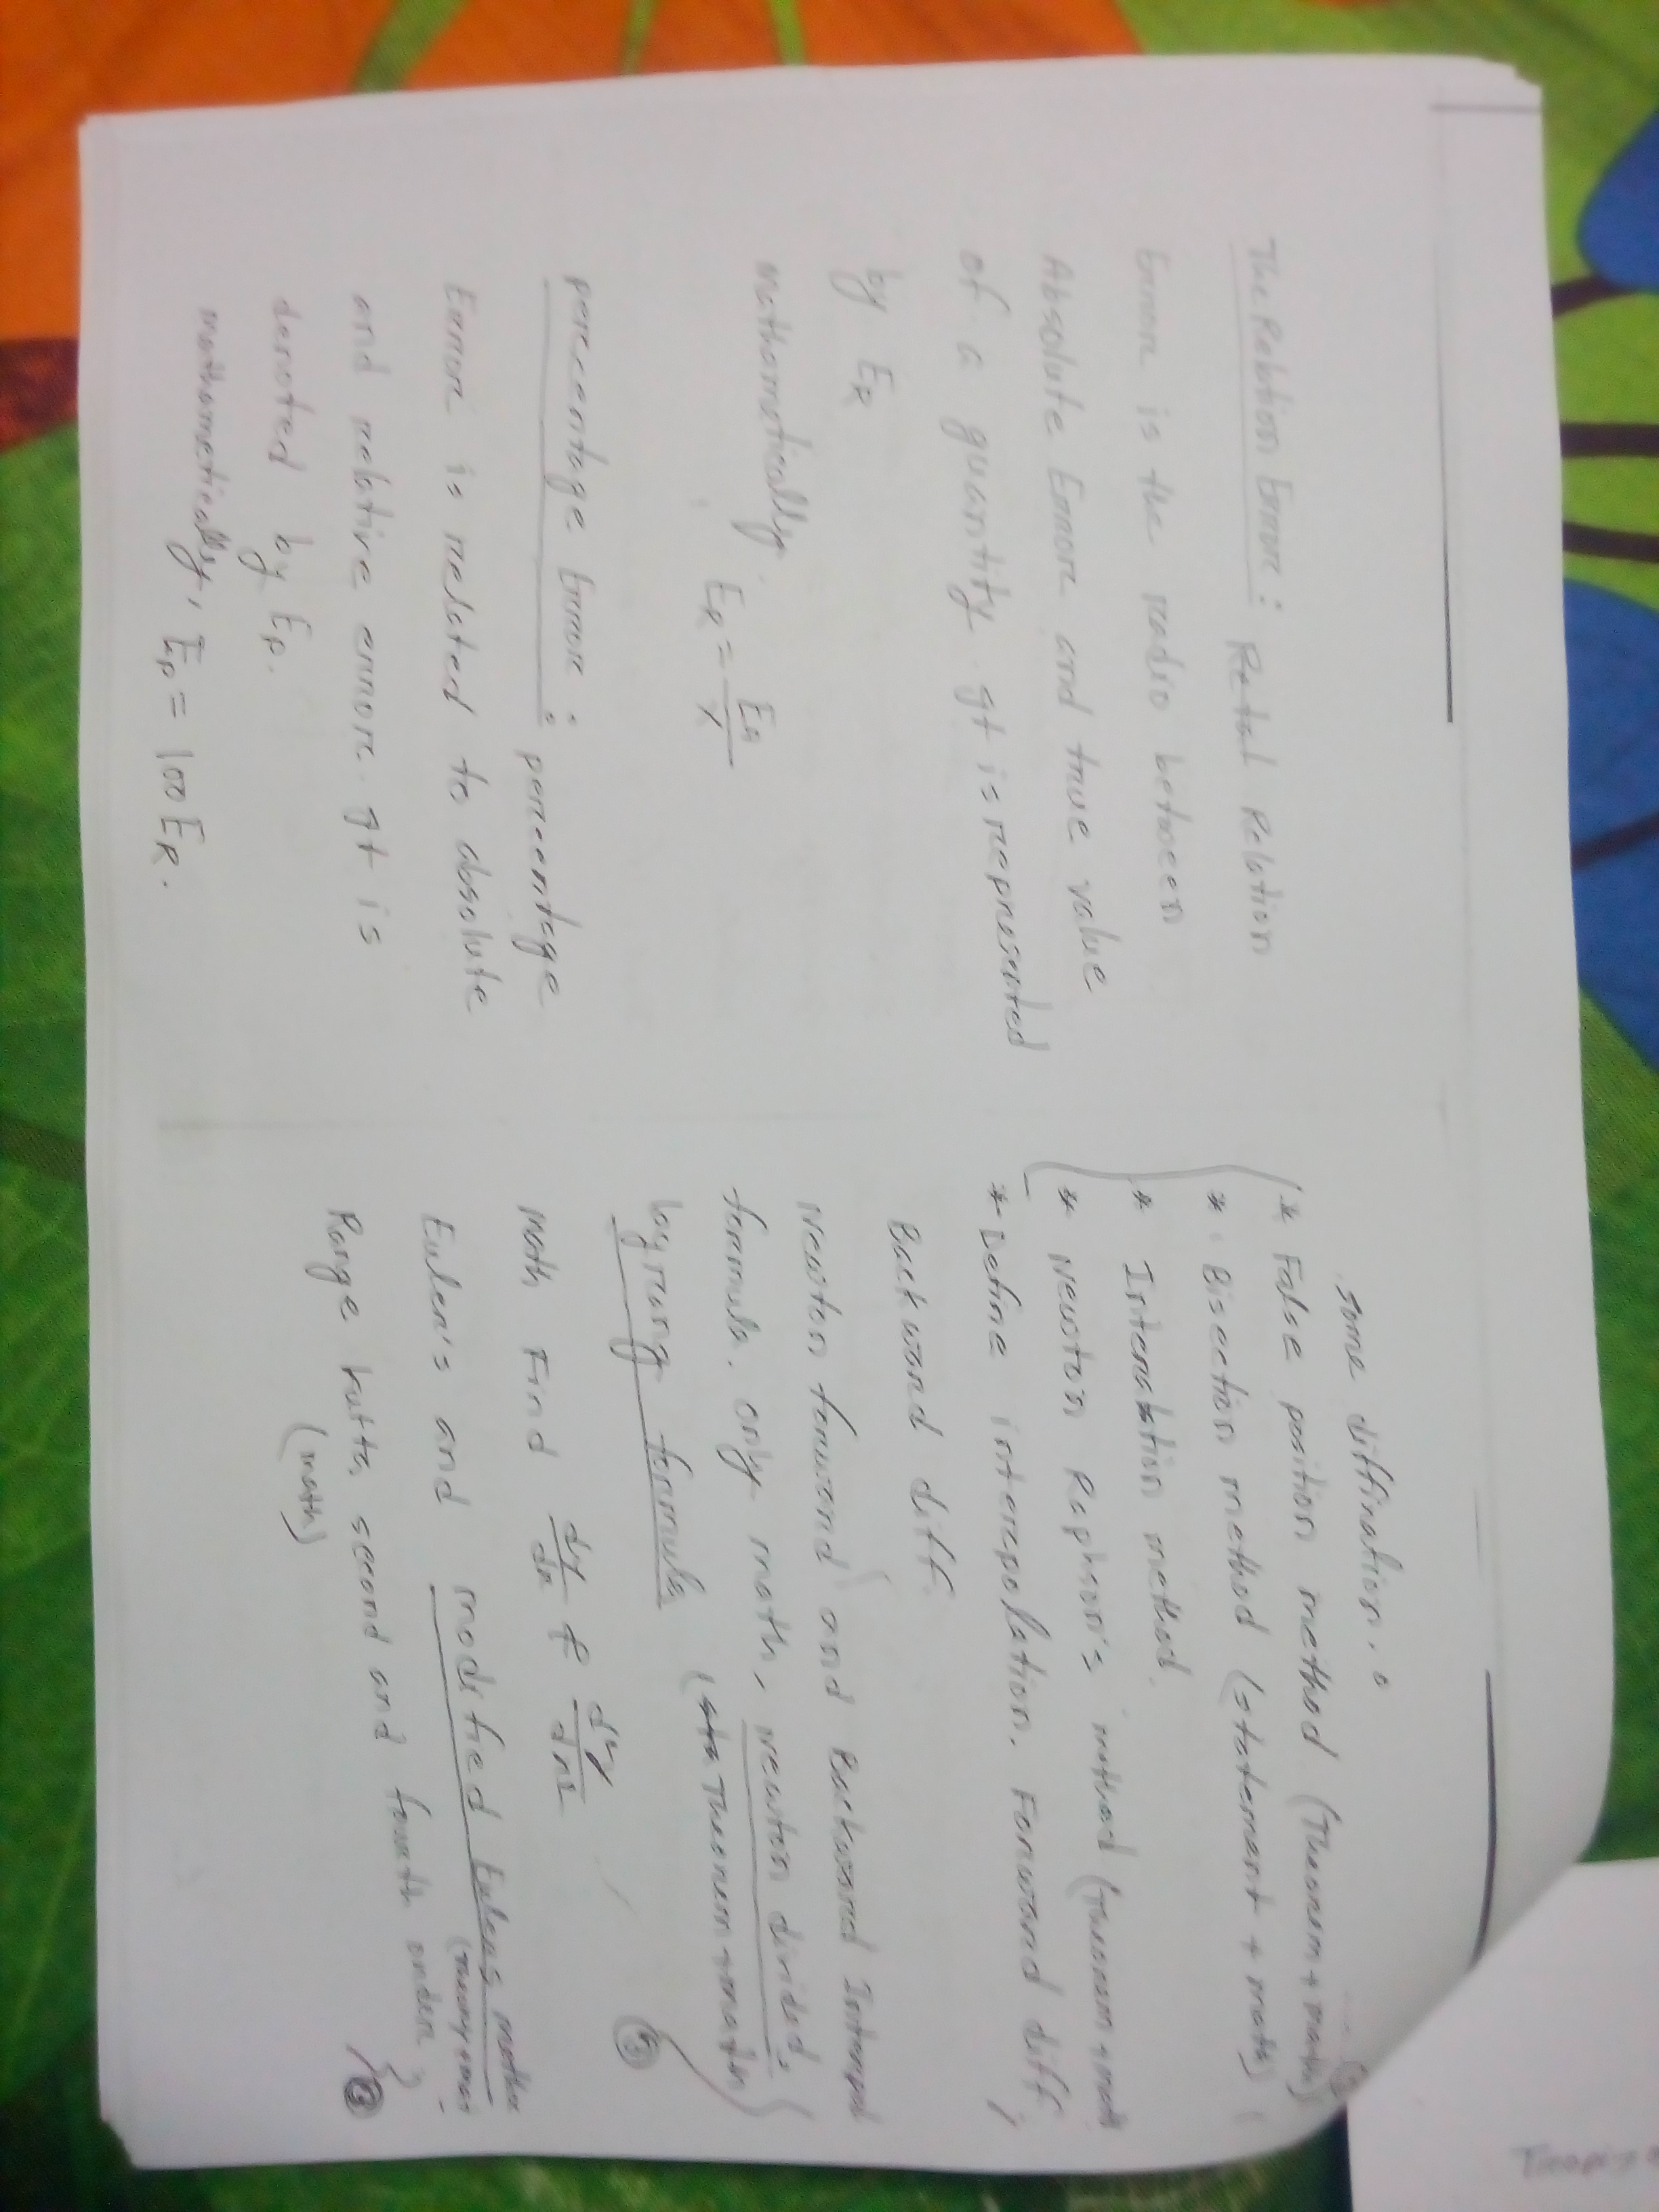 The Relation Error : Retal Relation
Error is the radio between
Absolute Error and true value
of a quantity. It is represented
by E_R
Mathametically.
E_R = E_A / X
percentage Error : percentage
Error is related to absolute
and relative error. It is
denoted by E_P.
mathametically, E_P = 100 E_R.
some diffination.
* False position method (Theorem + math)
* Bisection method (statement + math)
* Interation method.
* Newton Raphson's method (Theorem + math
* Define interpolation. Forward diff,
Backward diff.
Newton forward and Backward
formula. only math, newton divided,
formula (Theorem + math)
math Find dy/dx & d²y/dx²
Euler's and modified Eulers
(Theory + mat
Range kutta second and fourth order
(math)